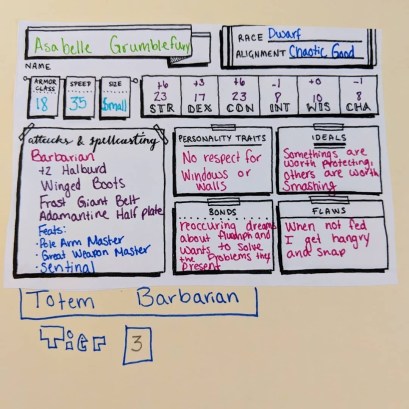 Asabelle Grumblefury
NAME
RACE Dwarf
ALIGNMENT Chaotic Good
ARMOR CLASS
18
SPEED
35
SIZE
Small
+6 +3 +6 -1 +0 -1
23 17 23 8 10 8
STR DEX CON INT WIS CHA
attacks & spellcasting
Barbarian
+2 Halburd
Winged Boots
Frost Giant Belt
Adamantine Half plate
Feats:
• Pole Arm Master
• Great Weapon Master
• Sentinal
PERSONALITY TRAITS
No respect for
Windows or
Walls
IDEALS
Somethings are
worth protecting,
others are worth
Smashing
BONDS
reoccuring dreams
about flumph and
wants to solve
the problems they
present
FLAWS
When not fed
I get hangry
and snap
Totem Barbarian
Tier 3